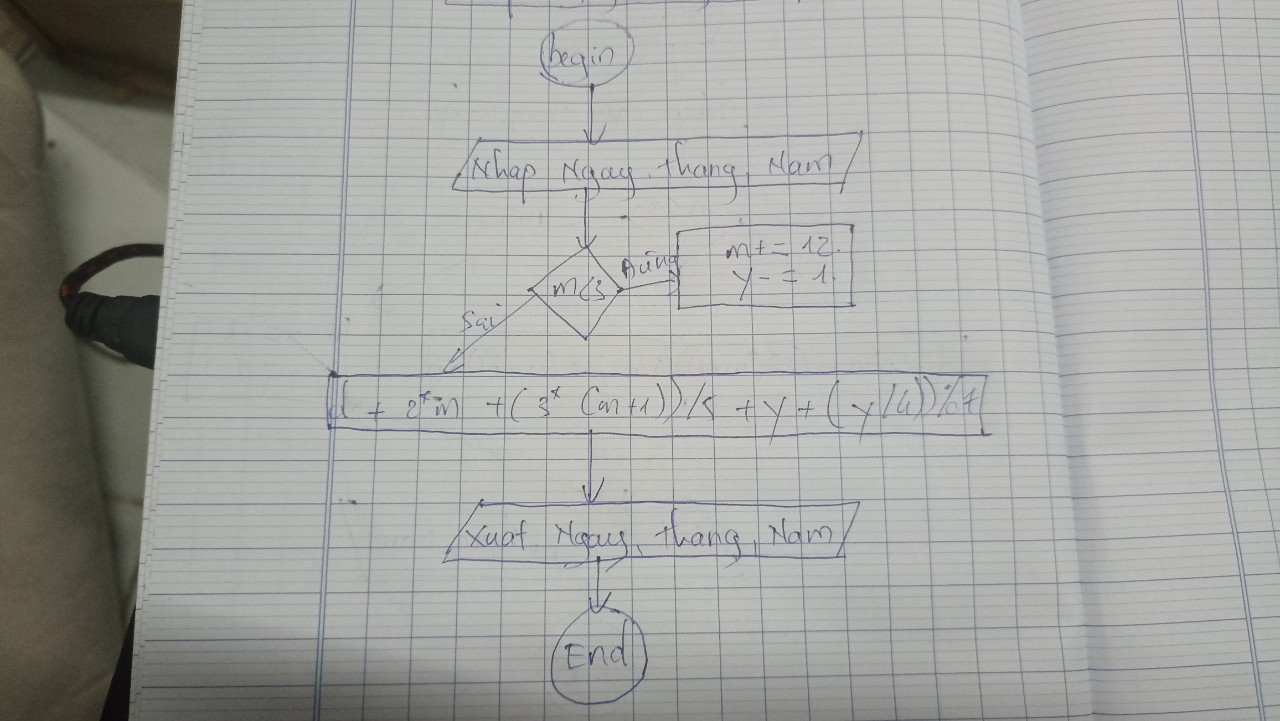 begin
Nhap Ngay, thang, Nam
m<3
Đúng
m+= 12.
y-= 1.
Sai
d + 2*m + (3* (m+1))/5 + y + (y/4))%7
Xuat Ngay, thang, Nam
End